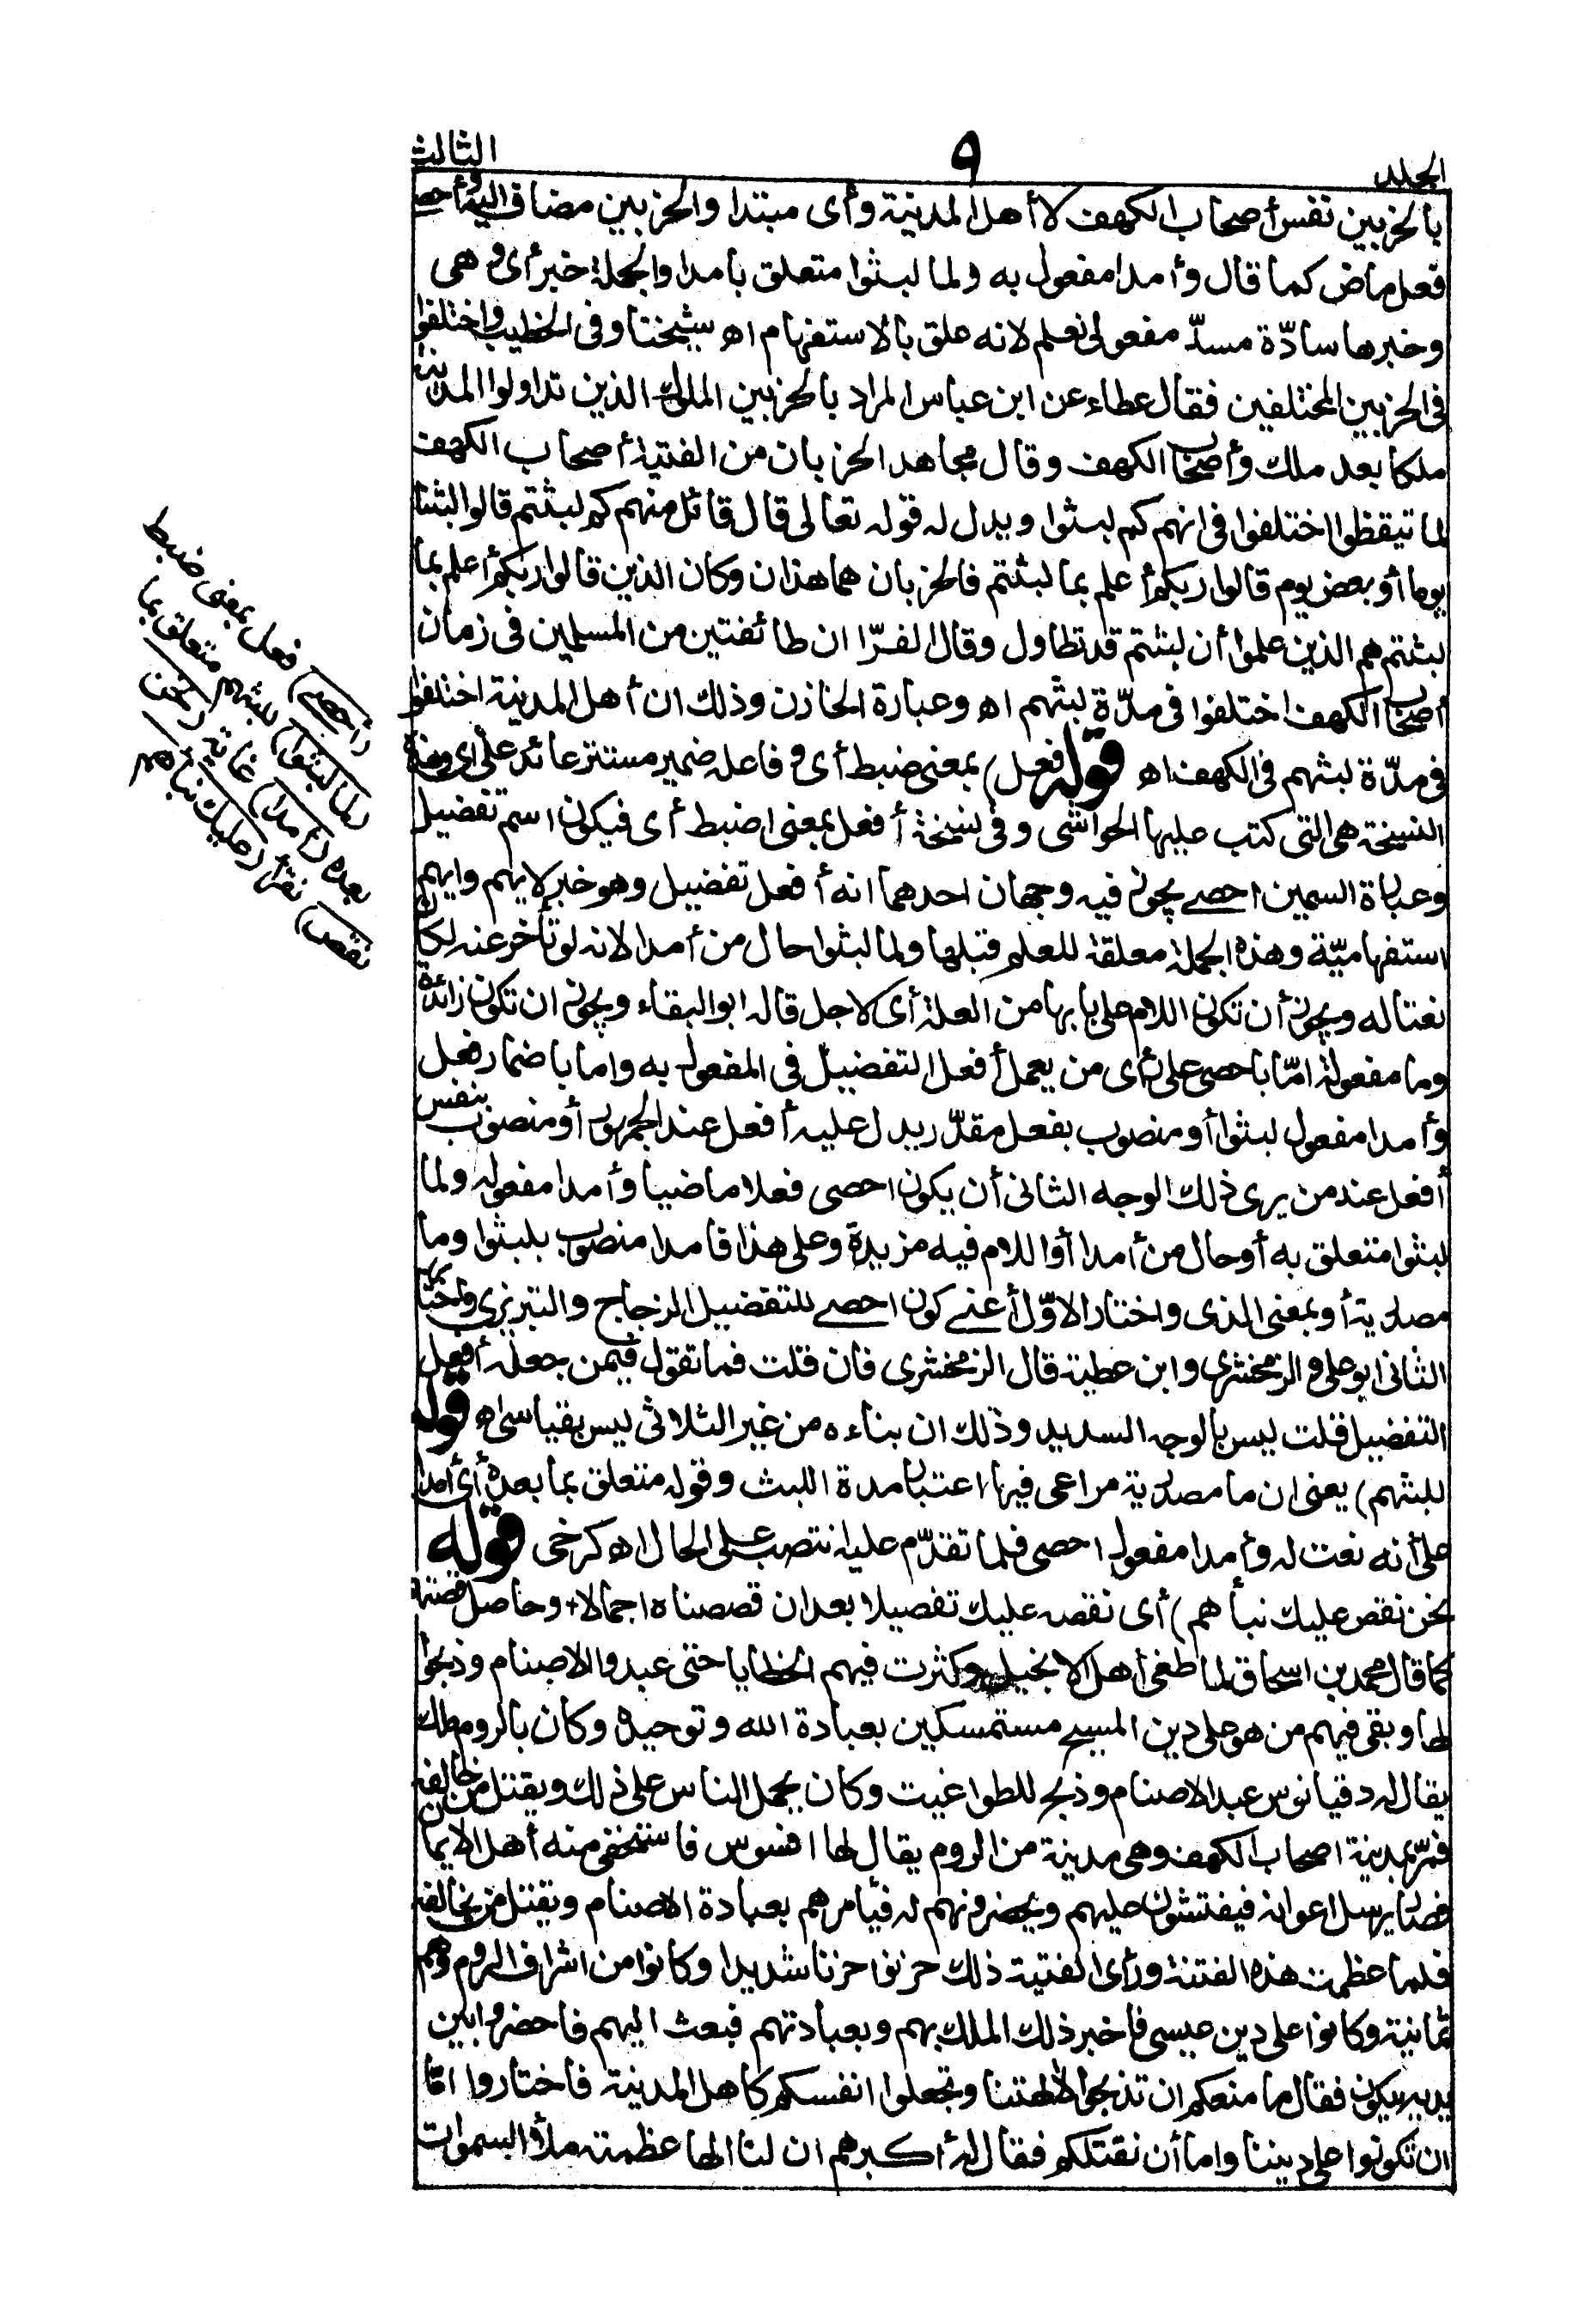 الجلد
٩
الثالث
بالحزبين نفس أصحاب الكهف لا أهل المدينة وأى مبتدا والحزبين مضاف اليه وأحصى
فعل ماض كما قال وأمدا مفعول به ولما لبثوا متعلق بامدا والجملة خبر أى وهى
وخبرها سادّة مسدّ مفعولى نعلم لانه علق بالاستفهام اه شيخنا وفى الخطيب واختلفوا
فى الحزبين المختلفين فقال عطاء عن ابن عباس المراد بالحزبين الملوك الذين تداولوا المدينة
ملكا بعد ملك وأصحاب الكهف وقال مجاهد الحزبان من الفتية أصحاب الكهف
لما تيقظوا اختلفوا فى انهم كم لبثوا ويدل له قوله تعالى قال قائل منهم كم لبثتم قالوا لبثنا
يوما أو بعض يوم قالوا ربكم أعلم بما لبثتم فالحزبان هما هذان وكان الذين قالوا ربكم أعلم بما
لبثتم هم الذين علموا أن لبثتم قد تطاول وقال الفرّا ان طائفتين من المسلمين فى زمان
أصحاب الكهف اختلفوا فى مدّة لبثهم اه وعبارة الخازن وذلك ان أهل المدينة اختلفوا
فى مدّة لبثهم فى الكهف اه قوله فعل) بمعنى ضبط أى وفاعله ضمير مستتر عائد على أى وهذه
النسخة هى التى كتب عليها الحواشى وفى نسخة أفعل بمعنى اضبط أى فيكون اسم تفضيل
وعبارة السمين احصى يجوز فيه وجهان احدهما انه أفعل تفضيل وهو خبر لايهم وايهم
استفهاميّة وهذه الجملة معلقة للعلم قبلها ولما لبثوا حال من أمدا لانه لو تأخر عنه لكان
نعتا له ويجوز أن تكون اللام على بابها من العلة أى لاجل قاله ابو البقاء ويجوز ان تكون زائدة
وما مفعولة امّا باحصى على رأى من يعمل أفعل التفضيل فى المفعول به واما باضمار فعل
وأمدا مفعول لبثوا أو منصوب بفعل مقدّر يدل عليه أفعل عند الجمهور أو منصوب بنفس
أفعل عند من يرى ذلك الوجه الثانى أن يكون احصى فعلا ماضيا وأمدا مفعوله ولما
لبثوا متعلق به أو حال من أمدا أو اللام فيه مزيدة وعلى هذا فامدا منصوب بلبثوا وما
مصدرية أو بمعنى الذى واختار الاوّل أعنى كون احصى للتفضيل الزجاج والتبريزى واختار
الثانى ابو على والزمخشرى وابن عطية قال الزمخشرى فان قلت فما تقول فيمن جعله أفعل
التفضيل قلت ليس بالوجه السديد وذلك ان بناءه من غير الثلاثى ليس بقياسى اه قوله
للبثهم) يعنى ان ما مصدرية مراعى فيها اعتبار مدة اللبث وقوله متعلق بما بعده أى أمدا
على أنه نعت له وأمدا مفعول احصى فلما تقدّم عليه انتصب على الحال اه كرخى قوله
نحن نقص عليك نبأهم) أى نقصه عليك تفصيلا بعد ان قصصناه اجمالا وحاصل قصتهم
كما قال محمد بن اسحاق لما طغى أهل الانجيل وكثرت فيهم الخطايا حتى عبدوا الاصنام وذبحوا
لها وبقى فيهم من هو على دين المسيح مستمسكين بعبادة الله وتوحيده وكان بالروم ملك
يقال له دقيانوس عبد الاصنام وذبح للطواغيت وكان يحمل الناس على ذلك ويقتل من خالفه
فمرّ بمدينة اصحاب الكهف وهى مدينة من الروم يقال لها افسوس فاستخفى منه أهل الايمان
فصار يرسل اعوانه فيفتشون عليهم ويحضرونهم له فيأمرهم بعبادة الاصنام ويقتل من يخالفه
فلما عظمت هذه الفتنة ورأى الفتية ذلك حزنوا حزنا شديدا وكانوا من اشراف الروم وهم
ثمانية وكانوا على دين عيسى فأخبر ذلك الملك بهم وبعبادتهم فبعث اليهم فاحضروا بين
يديه يبكون فقال ما منعكم ان تذبحوا لآلهتنا وتجعلوا انفسكم كاهل المدينة فاختاروا امّا
ان تكونوا على ديننا واما أن نقتلكم فقال له أكبرهم ان لنا الها عظمته ملأ السموات
(احصى) فعل بمعنى ضبط
(لما لبثوا) للبثهم متعلق بما
بعده (أمدا) غاية (نحن
نقص) نقرأ (عليك نبأهم